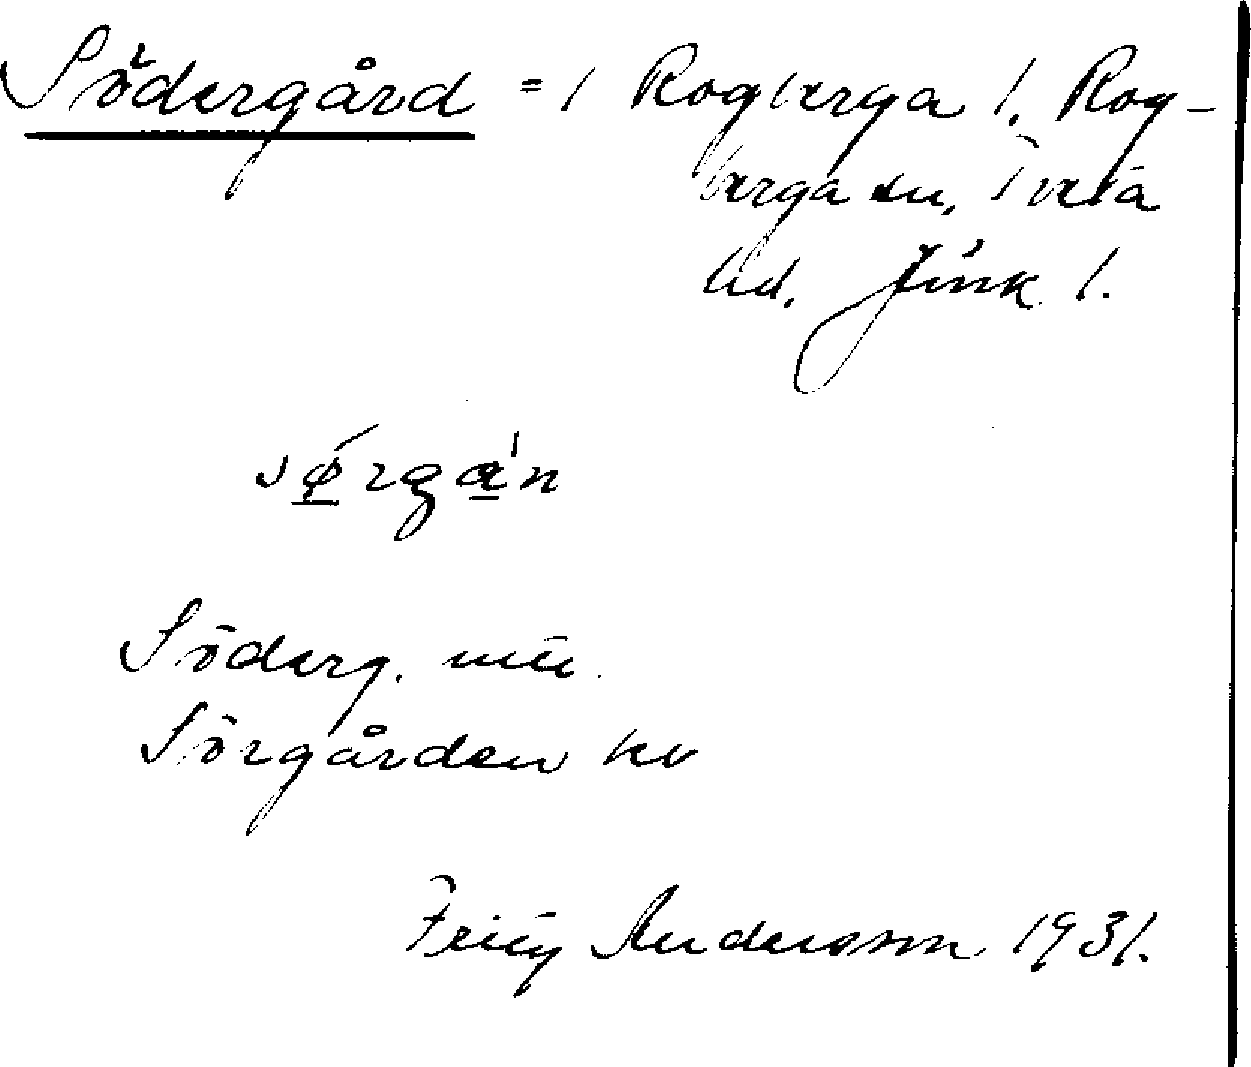 Södergård = 1 Rogberga l. Rog-
berga sn, Tveta
hd. Jönk l.
sǿrgá̱n
Söderg.
Sörgården kv
Andersson 1931.